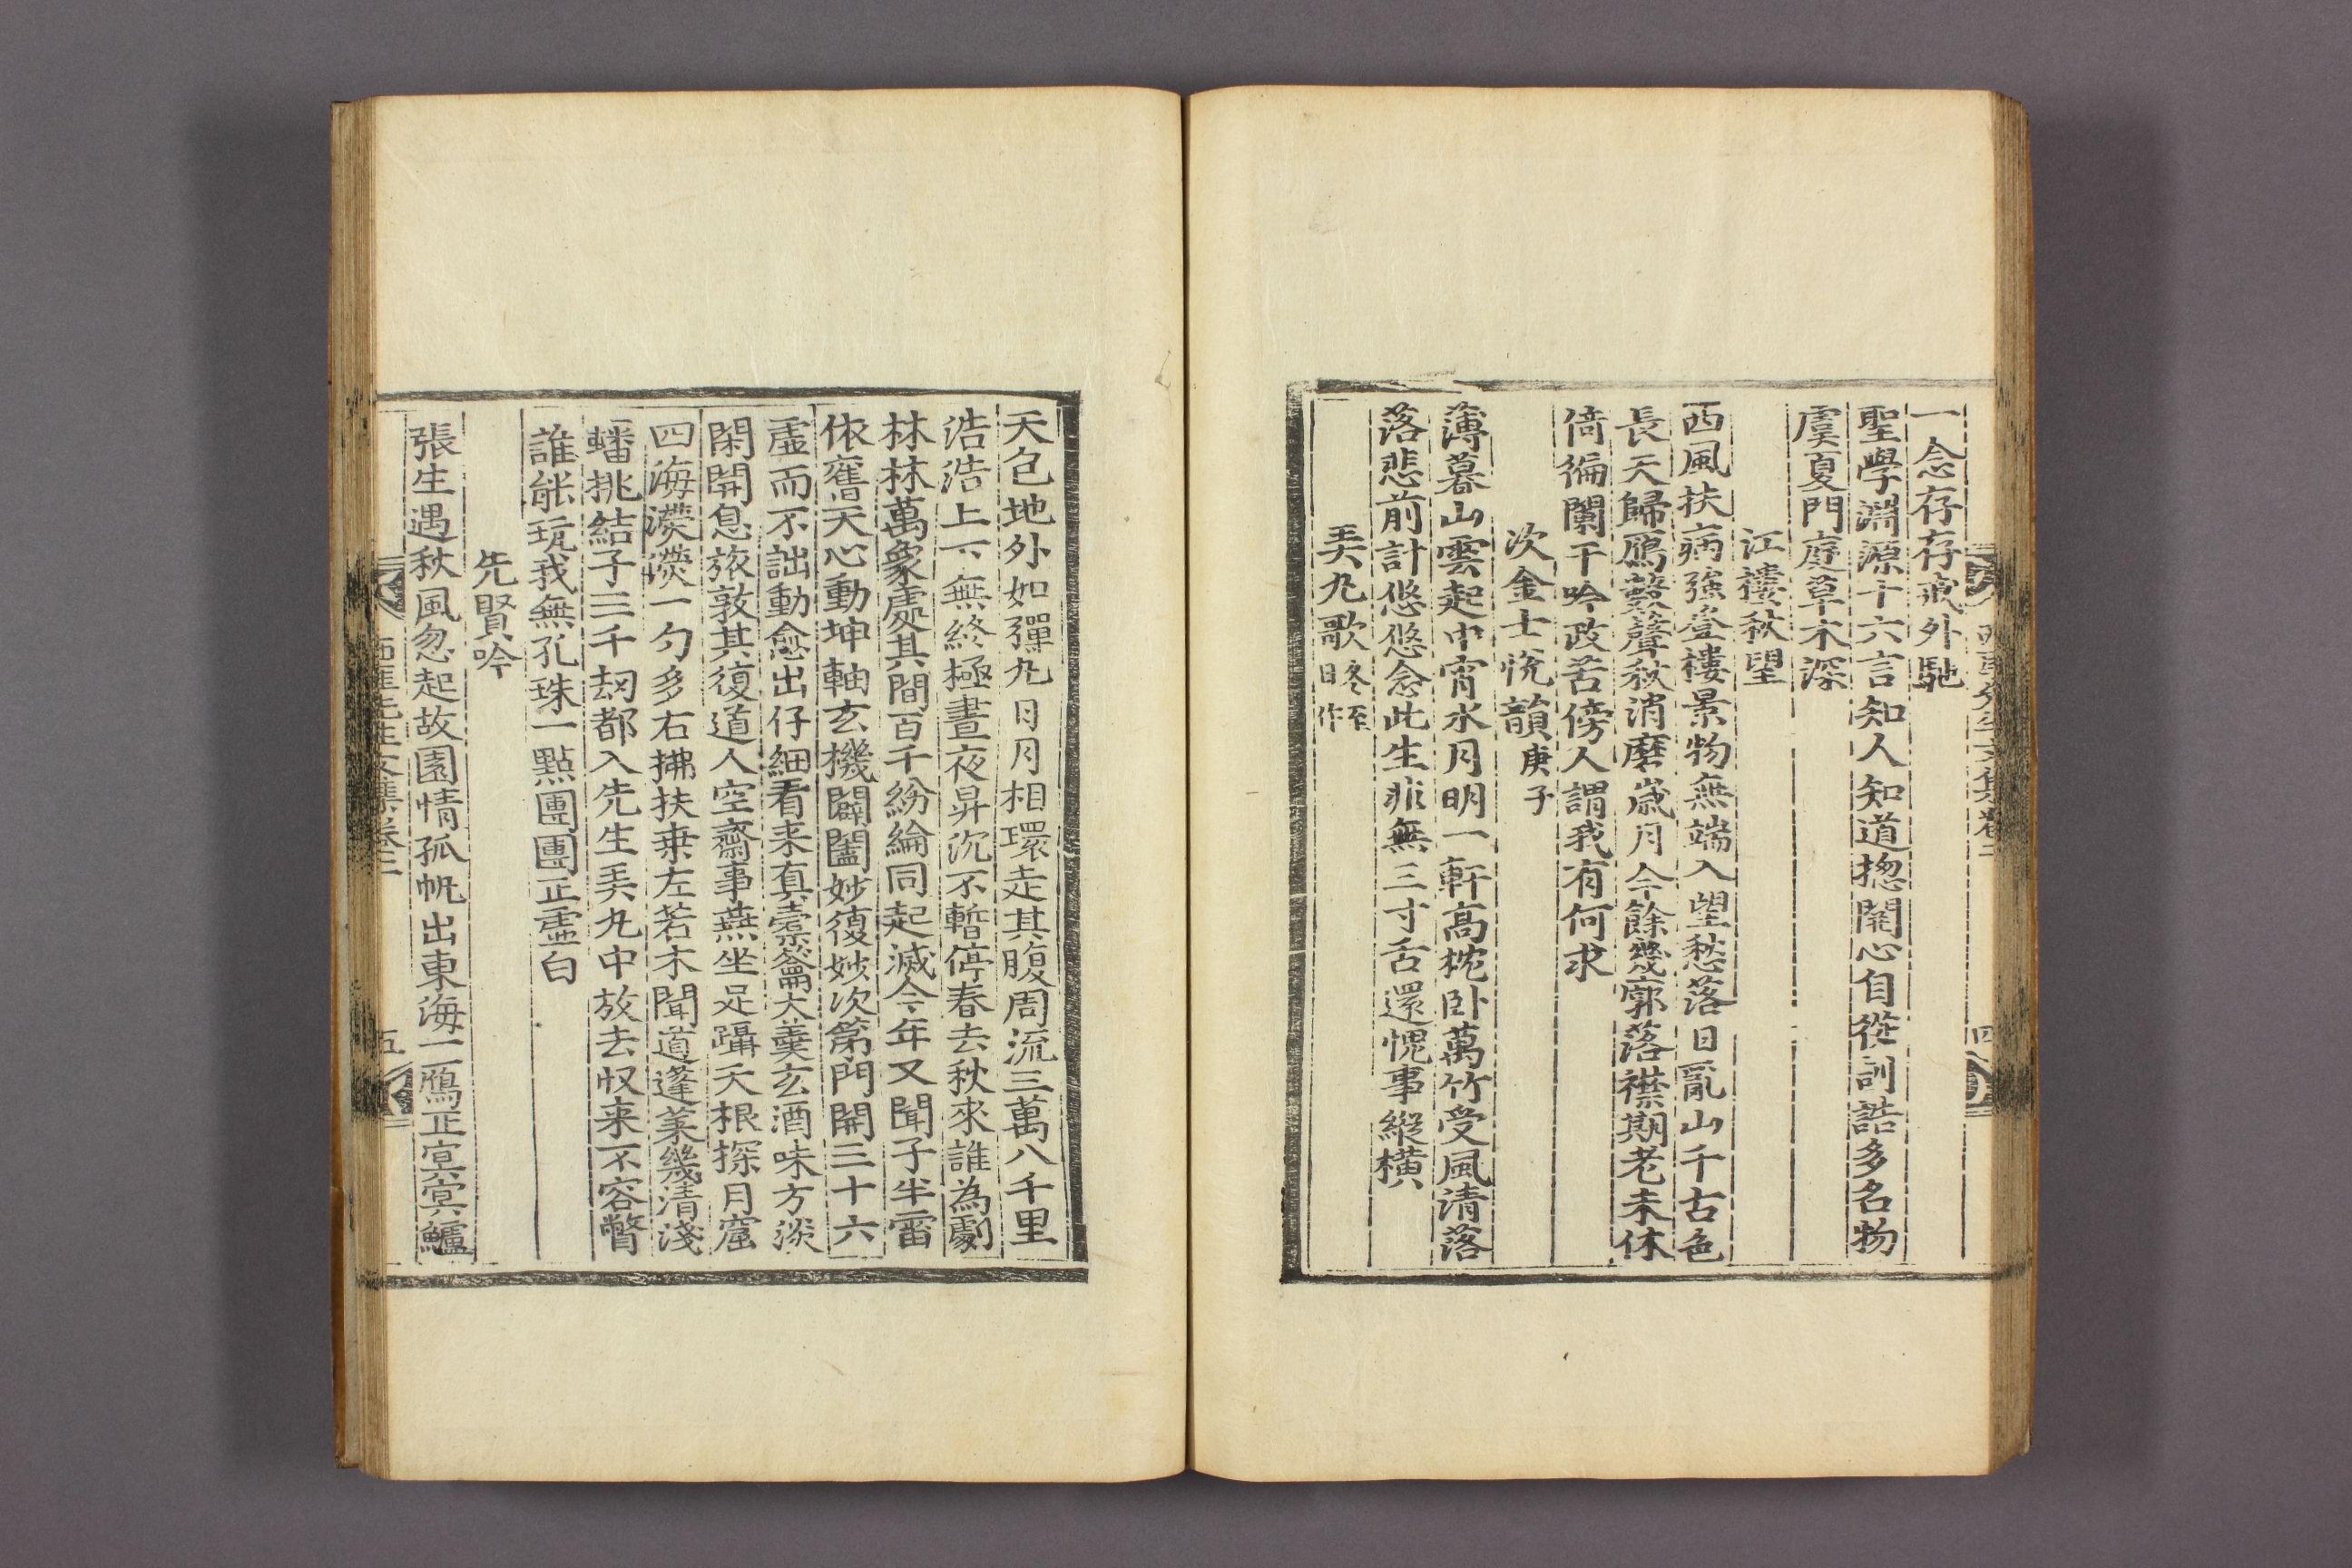 一念存存戒外馳
聖學淵源十六言知人知道揔開心自從訓誥多名物
虞夏門庭草木深
江樓秋望
西風扶病強登樓景物無端入望愁落日亂山千古色
長天歸鴈數聲秋消磨歲月今餘幾寥落襟期老未休
倚徧闌干吟政苦傍人謂我有何求
次金士悅韻庚子
薄暮山雲起中宵水月明一軒高枕卧萬竹受風清落
落悲前計悠悠念此生非無三寸舌還愧事縱橫
弄丸歌冬至日作
天包地外如彈丸日月相環走其腹周流三萬八千里
浩浩上下無終極晝夜昇沉不暫停春去秋來誰為劇
林林萬象處其間百千紛綸同起滅今年又聞子半雷
依舊天心動坤軸玄機闢闔妙復妙次第門開三十六
虛而不詘動愈出仔細看来真橐籥大羹玄酒味方淡
閑閑息旅敦其復道人空齋事燕坐足躡天根探月窟
四海濙濙一勺多右拂扶桒左若木聞道蓬莱幾清淺
蟠桃結子三千刼都入先生弄丸中放去収来不容瞥
誰能玩我無孔珠一點團團正虛白
先賢吟
張生遇秋風忽起故園情孤帆出東海一鴈正㝠㝠鱸
五
四